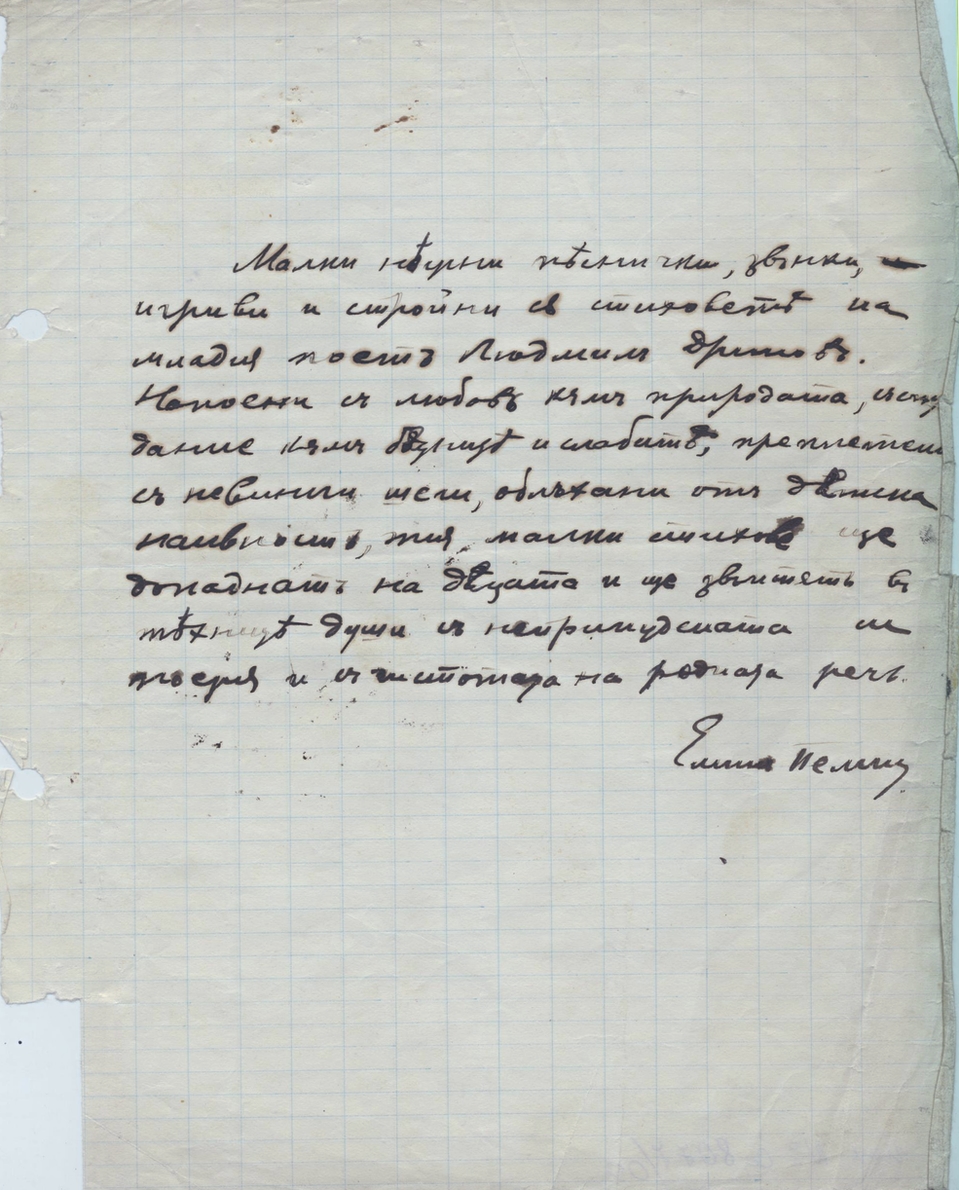 Малки нѣжни пѣснички, звънки,
игриви и стройни сѫ стиховетѣ на
младия поетъ Людмилъ
Напоени съ любовь към природата, състра
дание към бѣднитѣ и слабитѣ, преплетени
съ невинни шеги, облъхани отъ дѣтска
наивность, тия малки стихове ще
допаднатъ на дѣцата и ще звънтятъ въ
тѣхнитѣ души съ непринудената си
поезия и съ чистотата на родната речь.
Елинъ Пелинъ